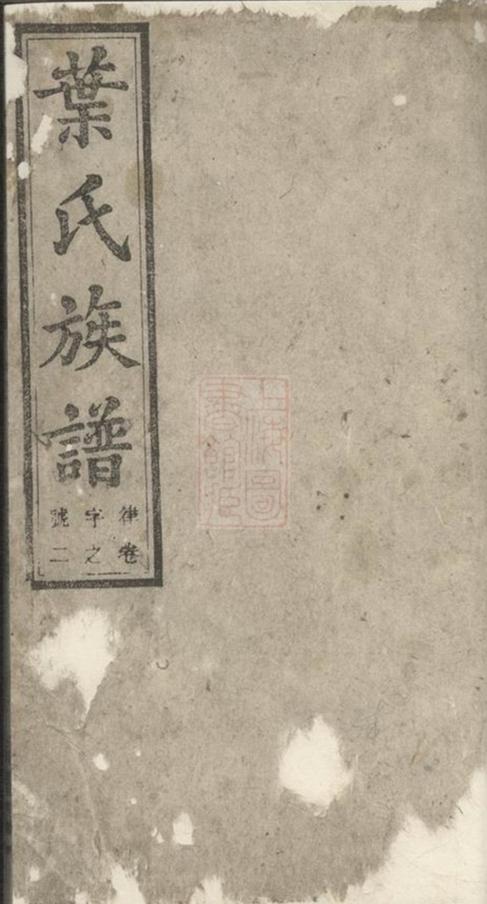 葉氏族譜
律字號
卷之二
上海圖
書館藏